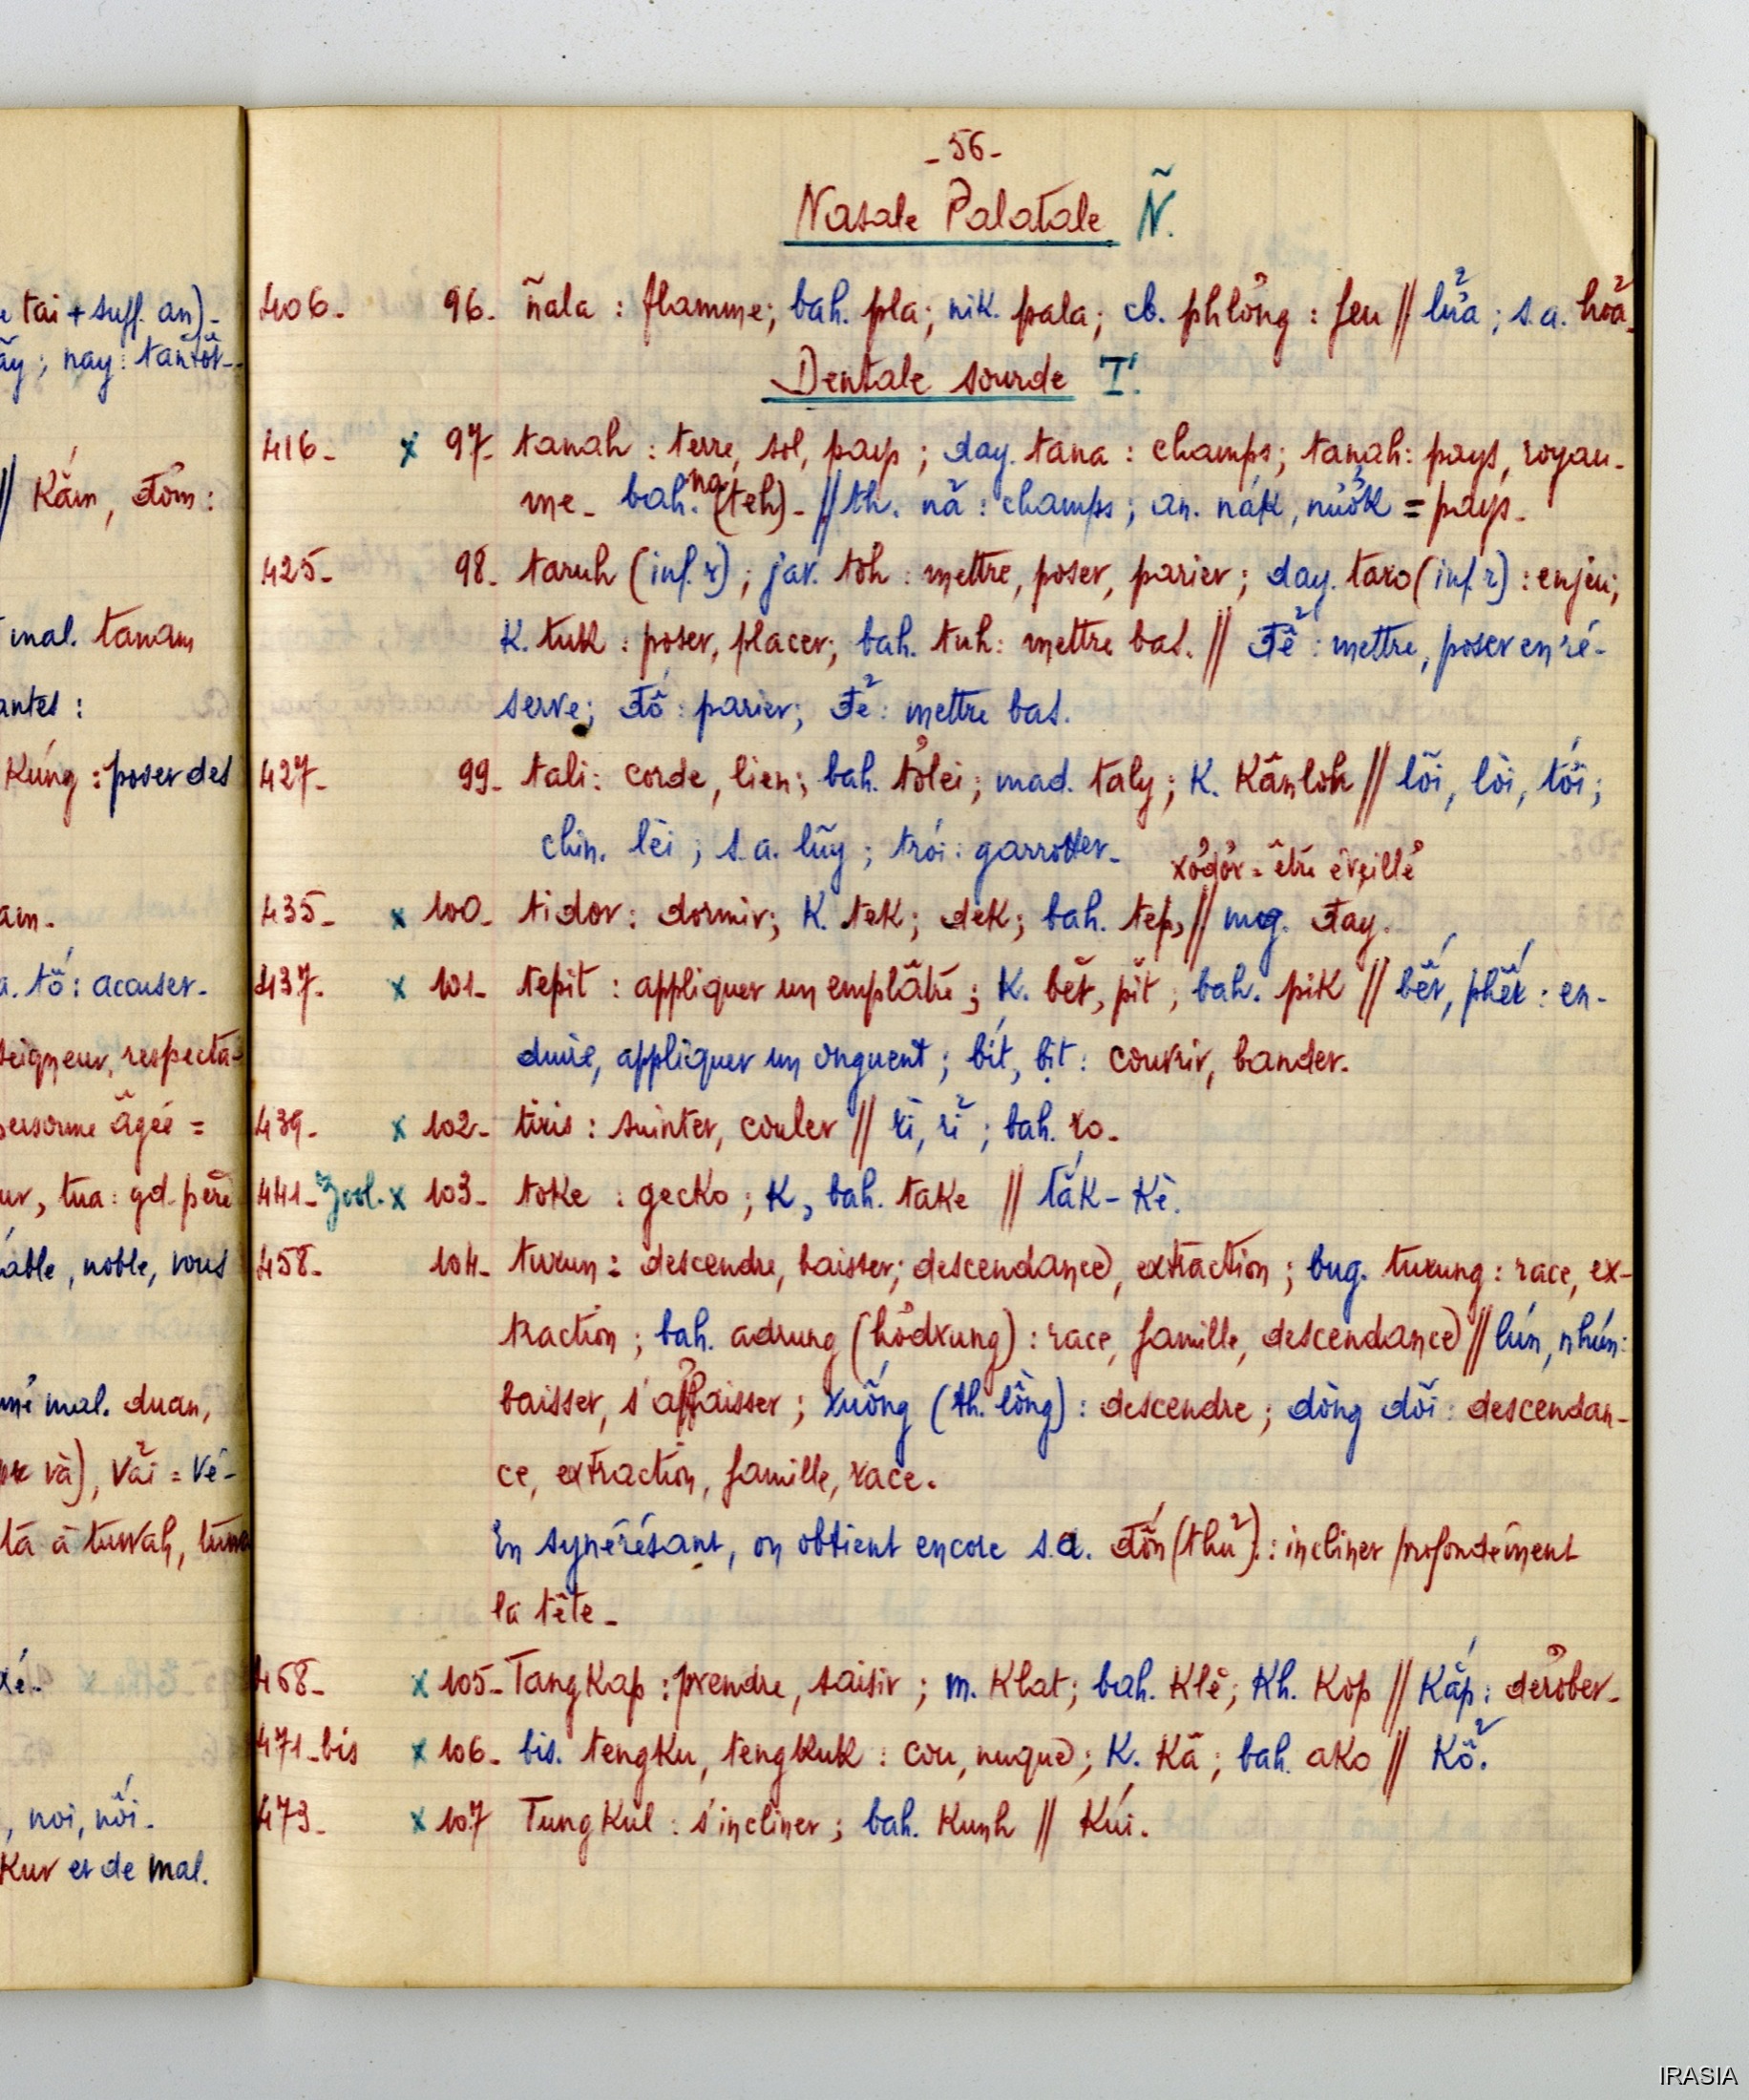 - 56 -
Nasale Palatale Ñ.
406- 96- ñala : flamme; bah. pla; nik. pala; cb. phlơng : feu // lửa ; s.a. hoả-
Dentale sourde T.
416- x 97- tanah : terre, sol, pays ; day. tana : champs; tanah : pays, royau-
me- bah. na (teh)- // th. nã : champs ; an. nák, nước = pays-
425- 98- taruh (inf. r) ; jav. tôh : mettre, poser, parier ; day. taro (inf. r) : enjeu;
K. tuk : poser, placer; bah. tuh : mettre bas. // để : mettre, poser en ré-
serve; đố : parier; đẻ : mettre bas.
427- 99- tali : corde, lien; bah. tơlei ; mad. taly ; K. Kâmloh // lõi, lòi, tói ;
chin. lèi ; s.a. lũy ; trói : garrotter-
xơdơr = être éveillé
435- x 100- tidor : dormir; K. tek; dek; bah. tep, // mg. đay.
437- x 101- tepit : appliquer un emplâtre ; K. bĕt, pĭt ; bah. pik // bết, phết : en-
duire, appliquer un onguent ; bít, bịt : couvrir, bander-
439- x 102- tiris : suinter, couler // rì, rỉ ; bah. ro-
441- Zool. x 103- toke : gecko ; K, bah. take // tắk-kè.
458- 104- turun : descendre, baisser; descendance, extraction ; bug. turung : race, ex-
traction ; bah. adrung (hơdrung) : race, famille, descendance // lún, nhún :
baisser, s'affaisser ; xuống (th. lông) : descendre ; dòng dõi : descendan-
ce, extraction, famille, race.
En synérésant, on obtient encore s.a. đốn (thủ) : incliner profondément
la tête-
468- x 105- Tangkap : prendre, saisir ; m. Klat; bah. Klĕ; Kh. Kop // Kắp : dérober-
471-bis x 106- bis. tengku, tengkuk : cou, nuque ; K. Kâ ; bah. ako // Kổ.
473- x 107 Tungkul : s'incliner ; bah. Kunh // Kúi.
tai + suff. an)-
nay : tantôt-
// Kăm, đơm :
mal. tanam
Kúng : poser des
tố : accuser-
seigneur, respecta-
personne âgée =
tua : gd-père
noble, vous
mal. duan,
và), vải = vé-
à tuwah,
noi, nối-
Kur et de mal.
IRASIA